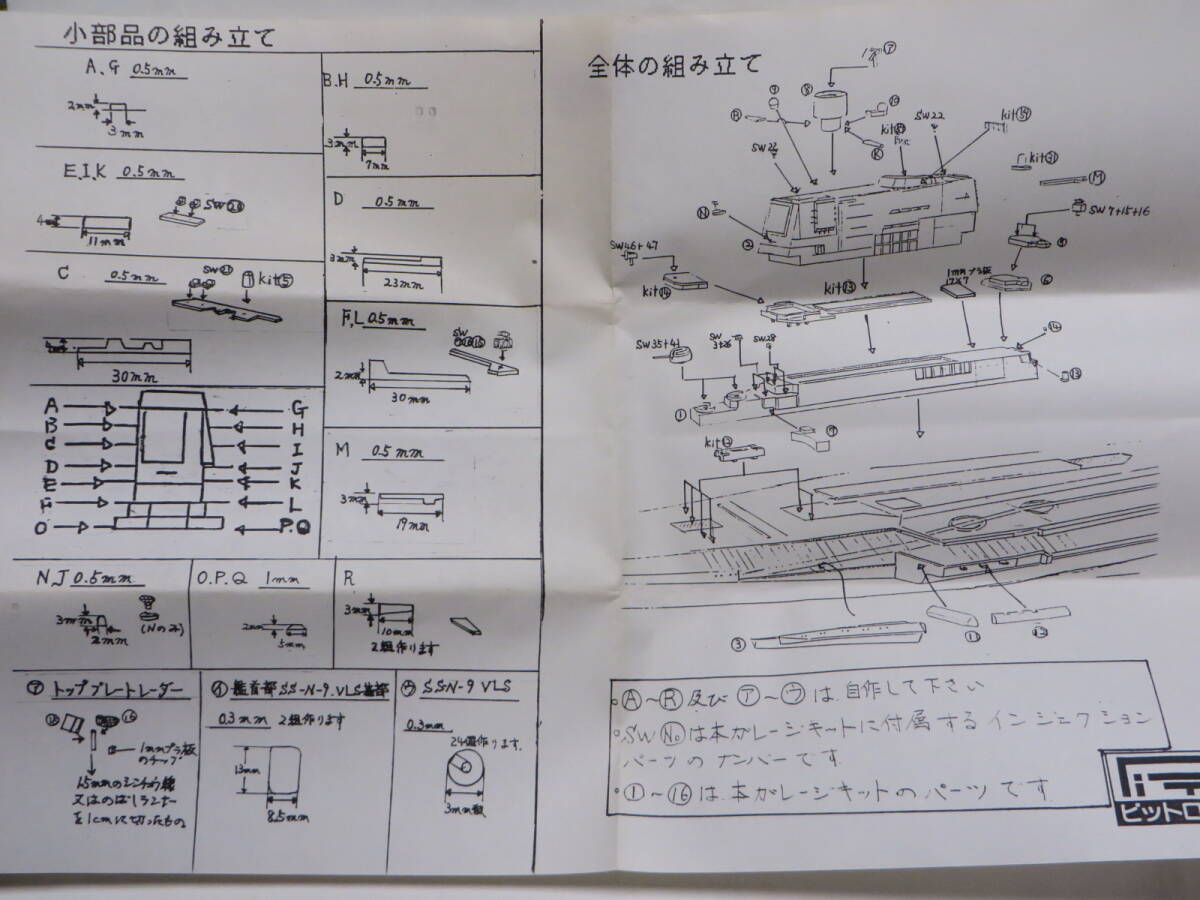 小部品の組み立て
A、G 0.5mm
2mm
3mm
B.H 0.5mm
3mm
7mm
E.I.K 0.5mm
SW
11mm
D 0.5mm
3mm
23mm
C 0.5mm
kit⑤
30mm
F,L 0.5mm
SW
2mm
30mm
A
B
C
D
E
F
O
G
H
I
J
K
L
P.Q
M 0.5mm
3mm
19mm
N.J 0.5mm
3mm
2mm
(Nのみ)
O.P.Q 1mm
2mm
5mm
R
3mm
10mm
2組作ります
㋐ トッププレートレーダー
⑯
1mmプラ板
のチップ
1.5mmのシンチュウ線
又はのばしランナー
を1cmに切ったもの
㋑ 艦首部SS-N-9.VLS基部
0.3mm 2組作ります
13mm
8.5mm
㋒ SSN-9 VLS
0.3mm
24個作ります.
3mm
全体の組み立て
㋐
⑧
⑩
Ⓡ
Ⓚ
SW22
SW22
kit㊴
kit㉑
Ⓜ
SW7+15+16
Ⓝ
②
SW46+47
kit⑭
kit⑬
1mmプラ板
17×7
⑥
SW35+41
SW
3+26
SW28
⑭
⑬
①
kit⑫
③
⑪
⑫
。Ⓐ～Ⓡ及び㋐～㋒は.自作して下さい
。SW Noは本ガレージキットに付属するインジェクション
パーツのナンバーです.
。①～⑯は.本ガレージキットのパーツです
ピットロ